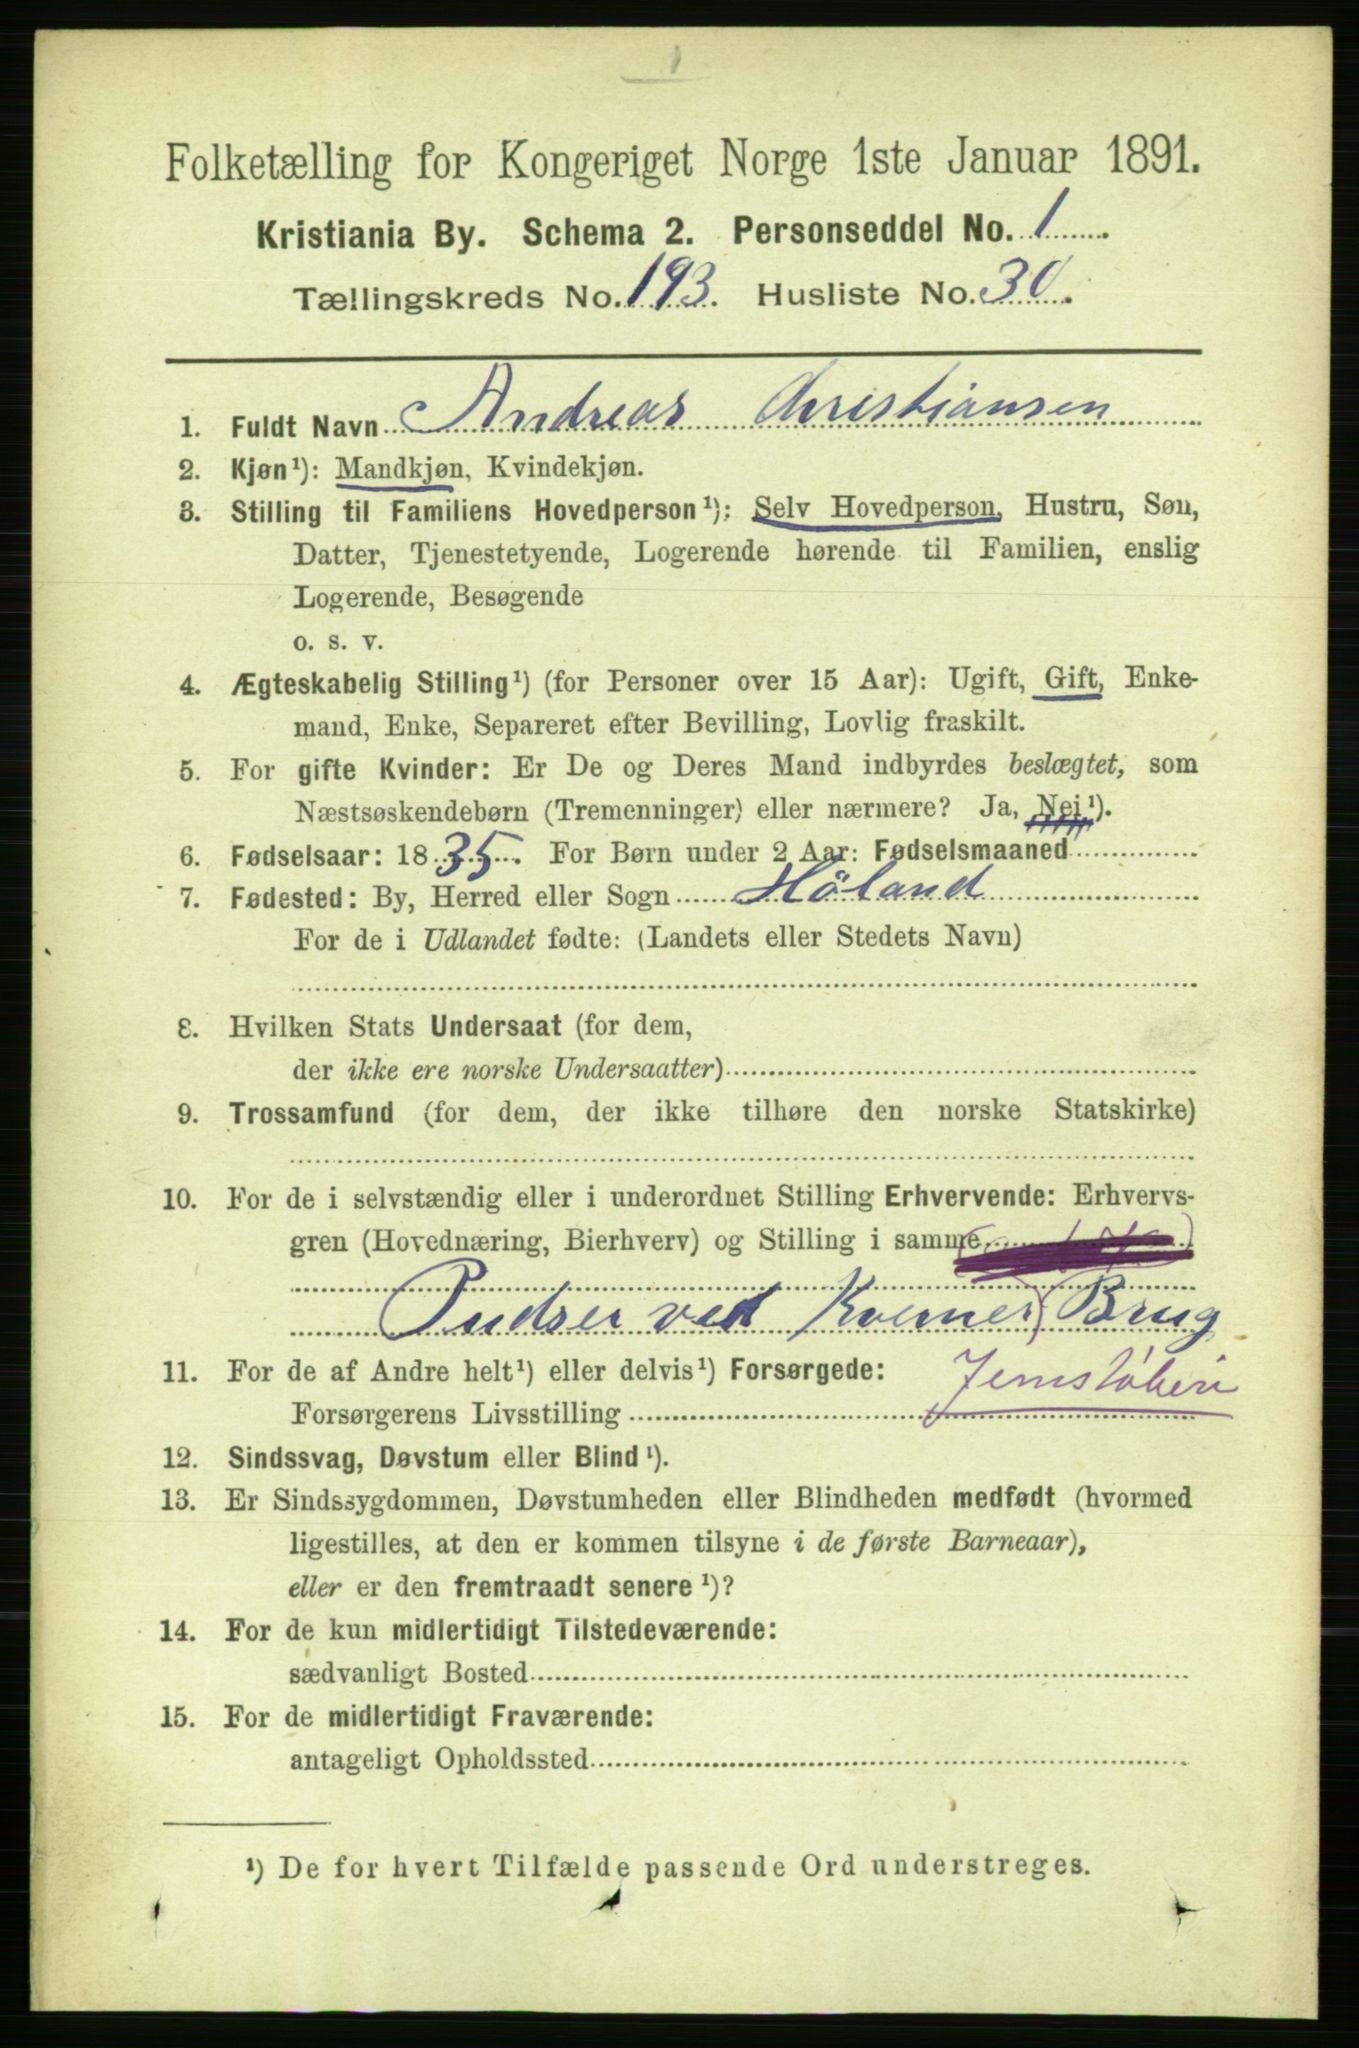 1
Folketælling for Kongeriget Norge 1ste Januar 1891.
Kristiania By. Schema 2. Personseddel No. 1
Tællingskreds No. 193. Husliste No. 30.
1. Fuldt Navn Andreas Christiansen
2. Kjøn¹): Mandkjøn, Kvindekjøn.
3. Stilling til Familiens Hovedperson¹): Selv Hovedperson, Hustru, Søn,
Datter, Tjenestetyende, Logerende hørende til Familien, enslig
Logerende, Besøgende
o. s. v.
4. Ægteskabelig Stilling¹) (for Personer over 15 Aar): Ugift, Gift, Enke-
mand, Enke, Separeret efter Bevilling, Lovlig fraskilt.
5. For gifte Kvinder: Er De og Deres Mand indbyrdes beslægtet, som
Næstsøskendebørn (Tremenninger) eller nærmere? Ja, Nei¹).
6. Fødselsaar: 1835. For Børn under 2 Aar: Fødselsmaaned
7. Fødested: By, Herred eller Sogn Höland
For de i Udlandet fødte: (Landets eller Stedets Navn)
8. Hvilken Stats Undersaat (for dem,
der ikke ere norske Undersaatter)
9. Trossamfund (for dem, der ikke tilhøre den norske Statskirke)
10. For de i selvstændig eller i underordnet Stilling Erhvervende: Erhvervs-
gren (Hovednæring, Bierhverv) og Stilling i samme
Pudser ved Kværner Brug
11. For de af Andre helt¹) eller delvis¹) Forsørgede: Jernstöberi
Forsørgerens Livsstilling
12. Sindssvag, Døvstum eller Blind¹).
13. Er Sindssygdommen, Døvstumheden eller Blindheden medfødt (hvormed
ligestilles, at den er kommen tilsyne i de første Barneaar),
eller er den fremtraadt senere¹)?
14. For de kun midlertidigt Tilstedeværende:
sædvanligt Bosted
15. For de midlertidigt Fraværende:
antageligt Opholdssted
¹) De for hvert Tilfælde passende Ord understreges.